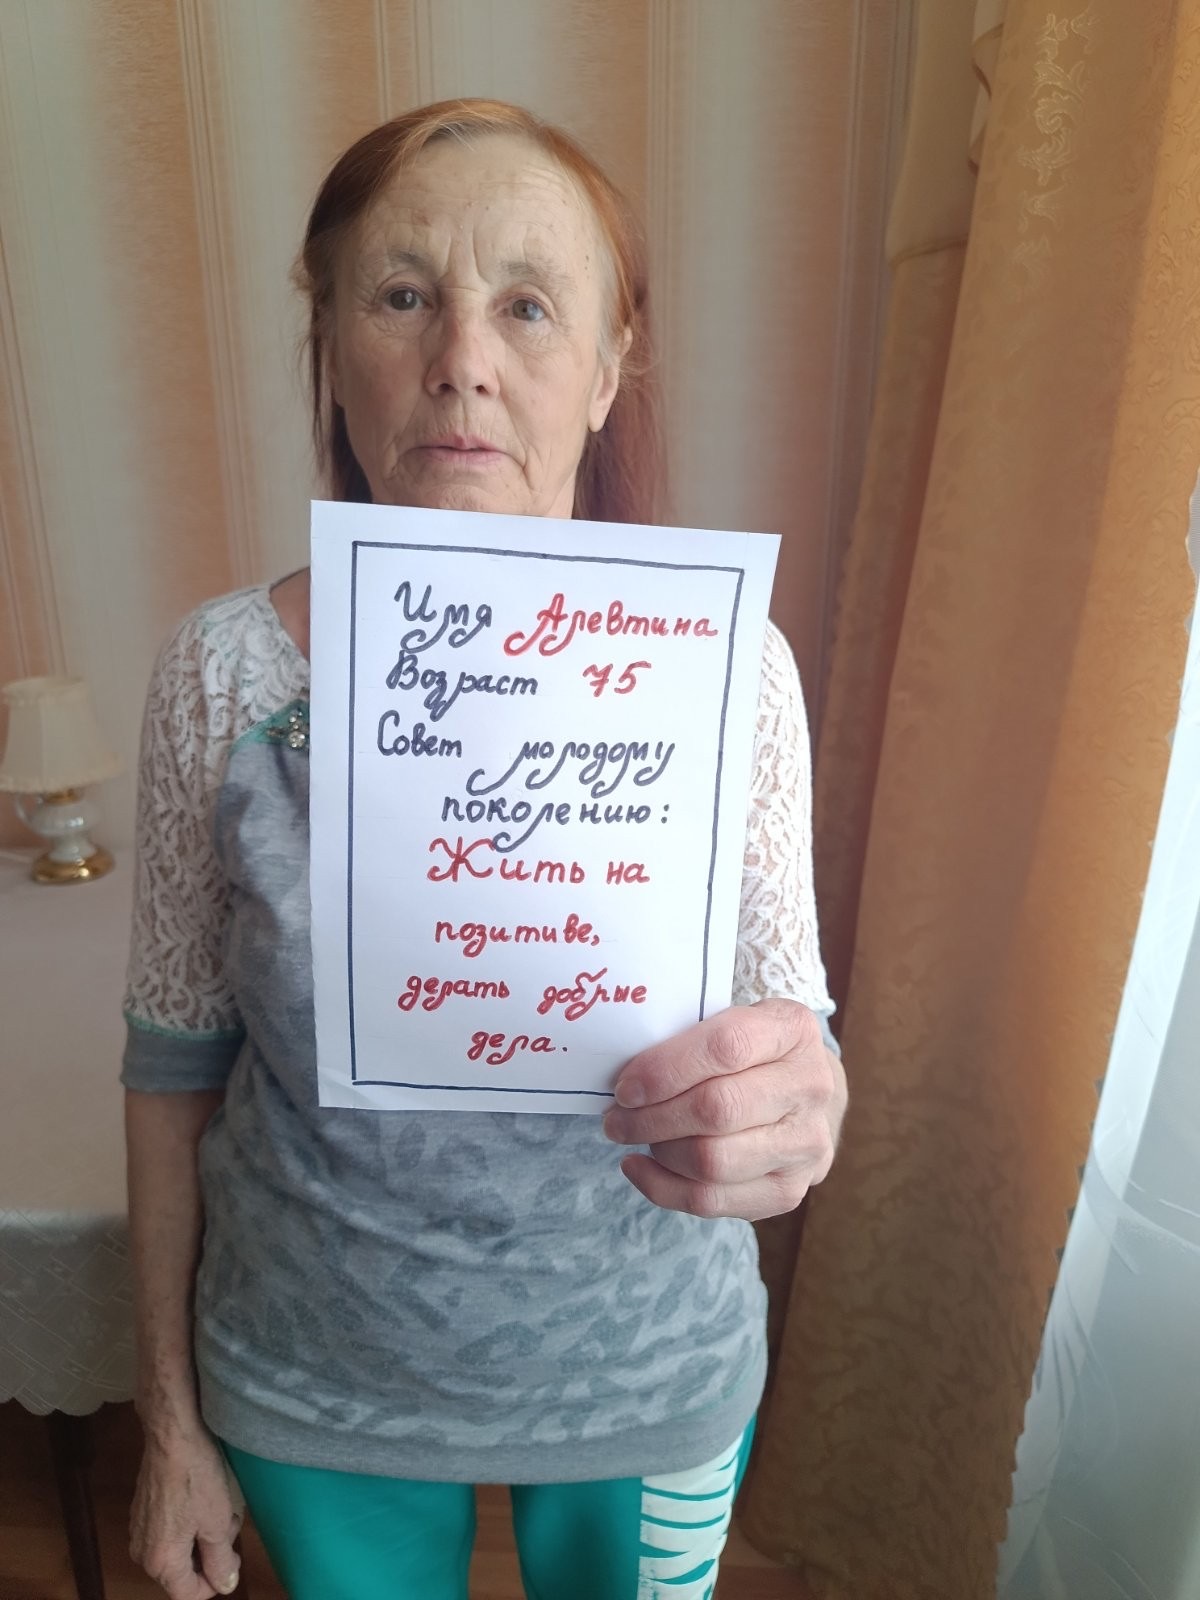 Имя Алевтина
Возраст 75
Совет молодому
поколению:
Жить на
позитиве,
делать добрые
дела.